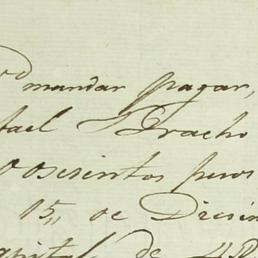 mandar pagar,
fael Bracho
Doscientos pesos
15,, de Diciem
capital de